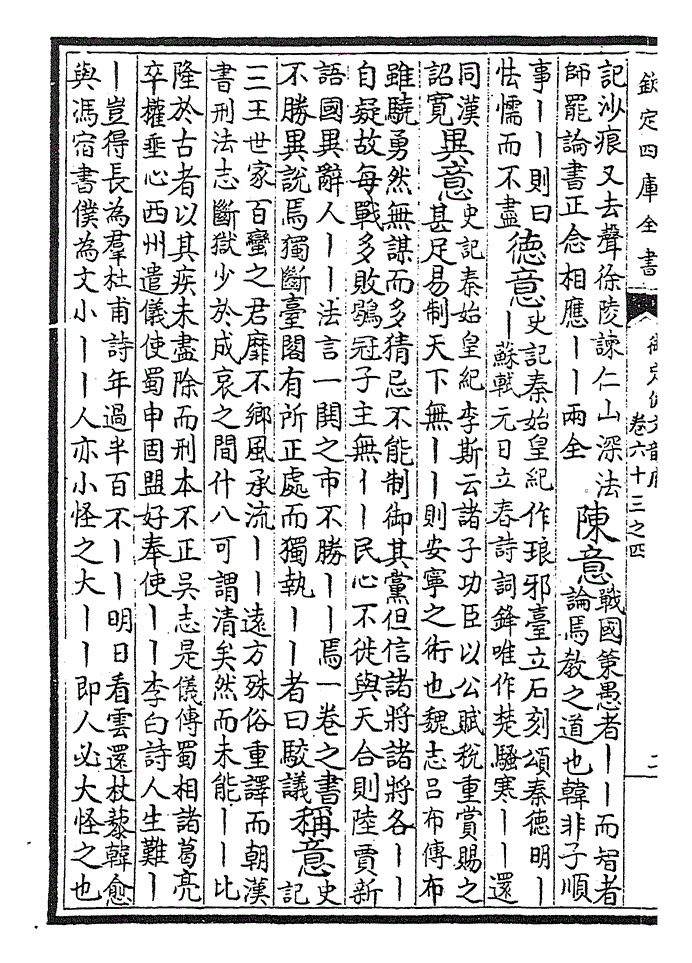 欽定四庫全書
御定佩文韻府
卷六十三之四
二
記沙痕又去聲徐陵諫仁山深法
師罷論書正念相應丨丨兩全
陳意
戰國策愚者丨丨而智者
論焉教之道也韓非子順
事丨丨則曰
怯懦而不盡
德意
史記秦始皇紀作琅邪臺立石刻頌秦德明丨
丨蘇軾元日立春詩詞鋒唯作楚騷寒丨丨還
同漢
詔寬
異意
史記秦始皇紀李斯云諸子功臣以公賦稅重賞賜之
甚足易制天下無丨丨則安寧之術也魏志呂布傳布
雖驍勇然無謀而多猜忌不能制御其黨但信諸將諸將各丨丨
自疑故每戰多敗鶡冠子主無丨丨民心不徙與天合則陸賈新
語國異辭人丨丨法言一閧之市不勝丨丨焉一卷之書
不勝異說焉獨斷臺閣有所正處而獨執丨丨者曰駁議
稱意
史
記
三王世家百蠻之君靡不鄉風承流丨丨遠方殊俗重譯而朝漢
書刑法志斷獄少於成哀之間什八可謂清矣然而未能丨丨比
隆於古者以其疾未盡除而刑本不正吳志是儀傳蜀相諸葛亮
卒權垂心西州遣儀使蜀申固盟好奉使丨丨李白詩人生難丨
丨豈得長為羣杜甫詩年過半百不丨丨明日看雲還杖藜韓愈
與馮宿書僕為文小丨丨人亦小怪之大丨丨即人必大怪之也